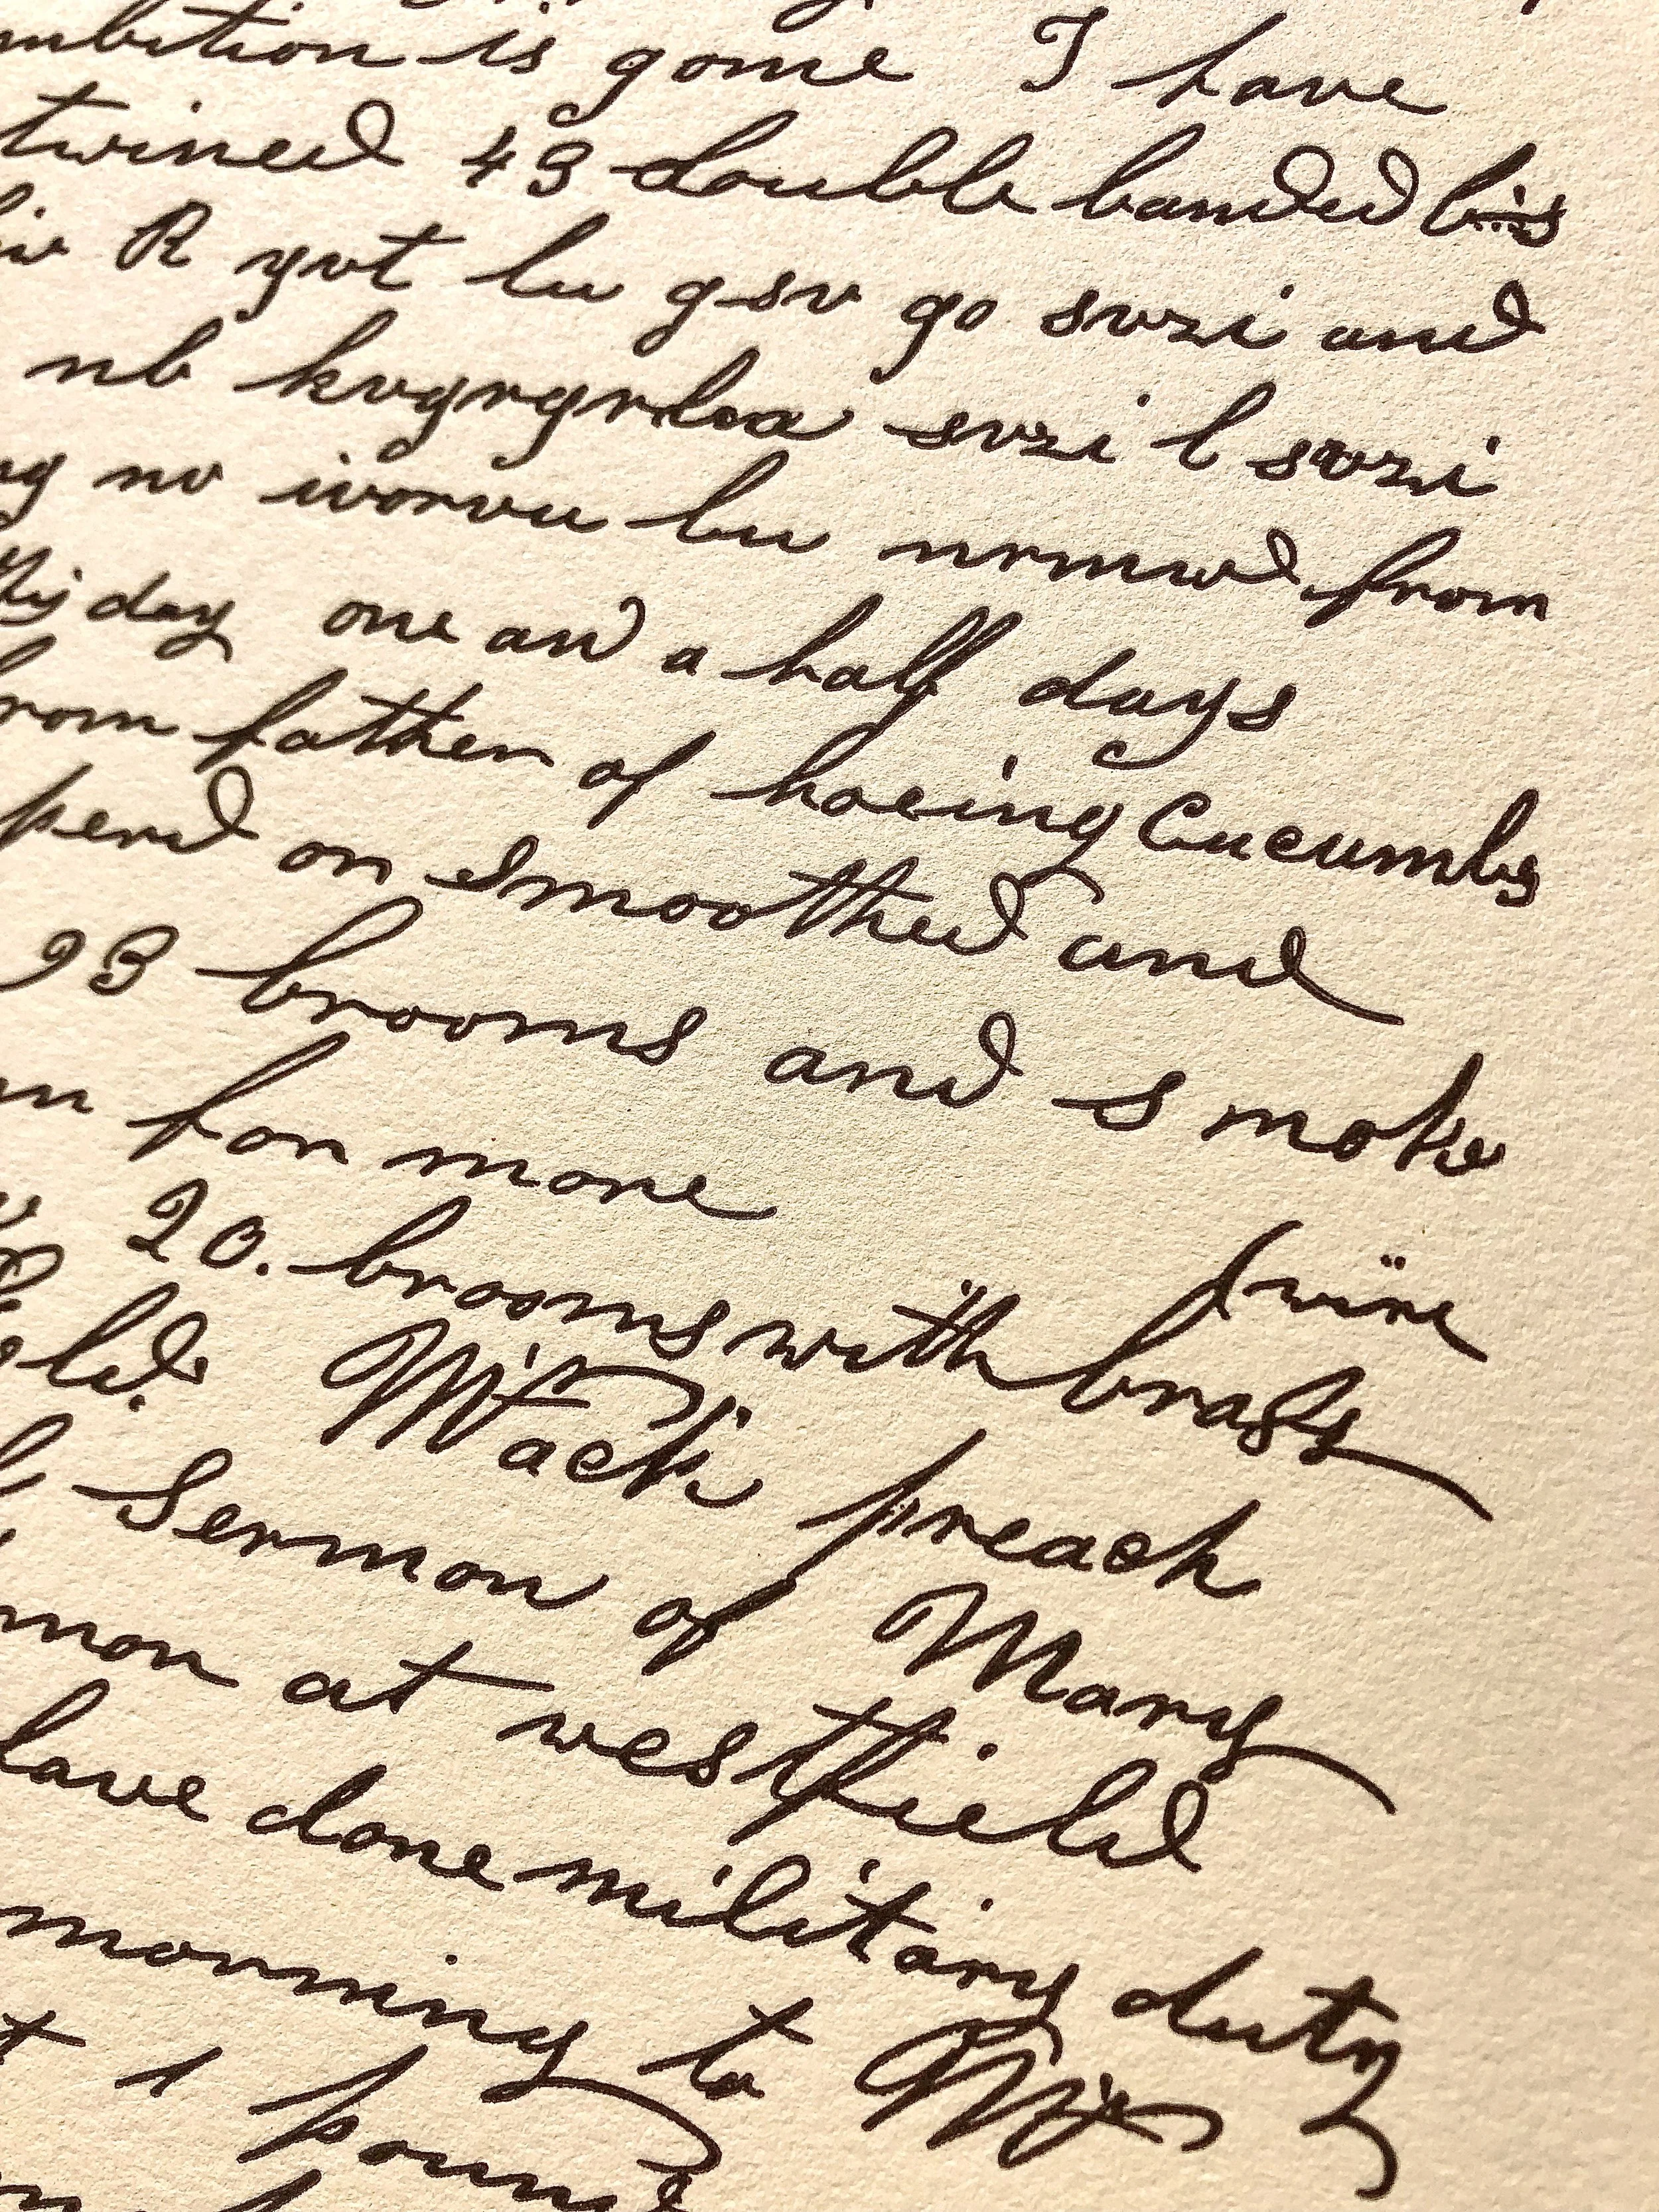 ambition is gone I have
twined 49 double banded bis
R yvt lu gsv go svzi and
nb kvgrgrlm svzi l svzi
nv ivorvu lu nrmw from
this day one and a half days
from father of hoeing Cucumbs
on Smoothed and
93 brooms and smoke
for more
twine
20. brooms with brass
Mr Mack preach
Sermon of Mary
at westfield
have done military duty
morning to Mr
1 pound